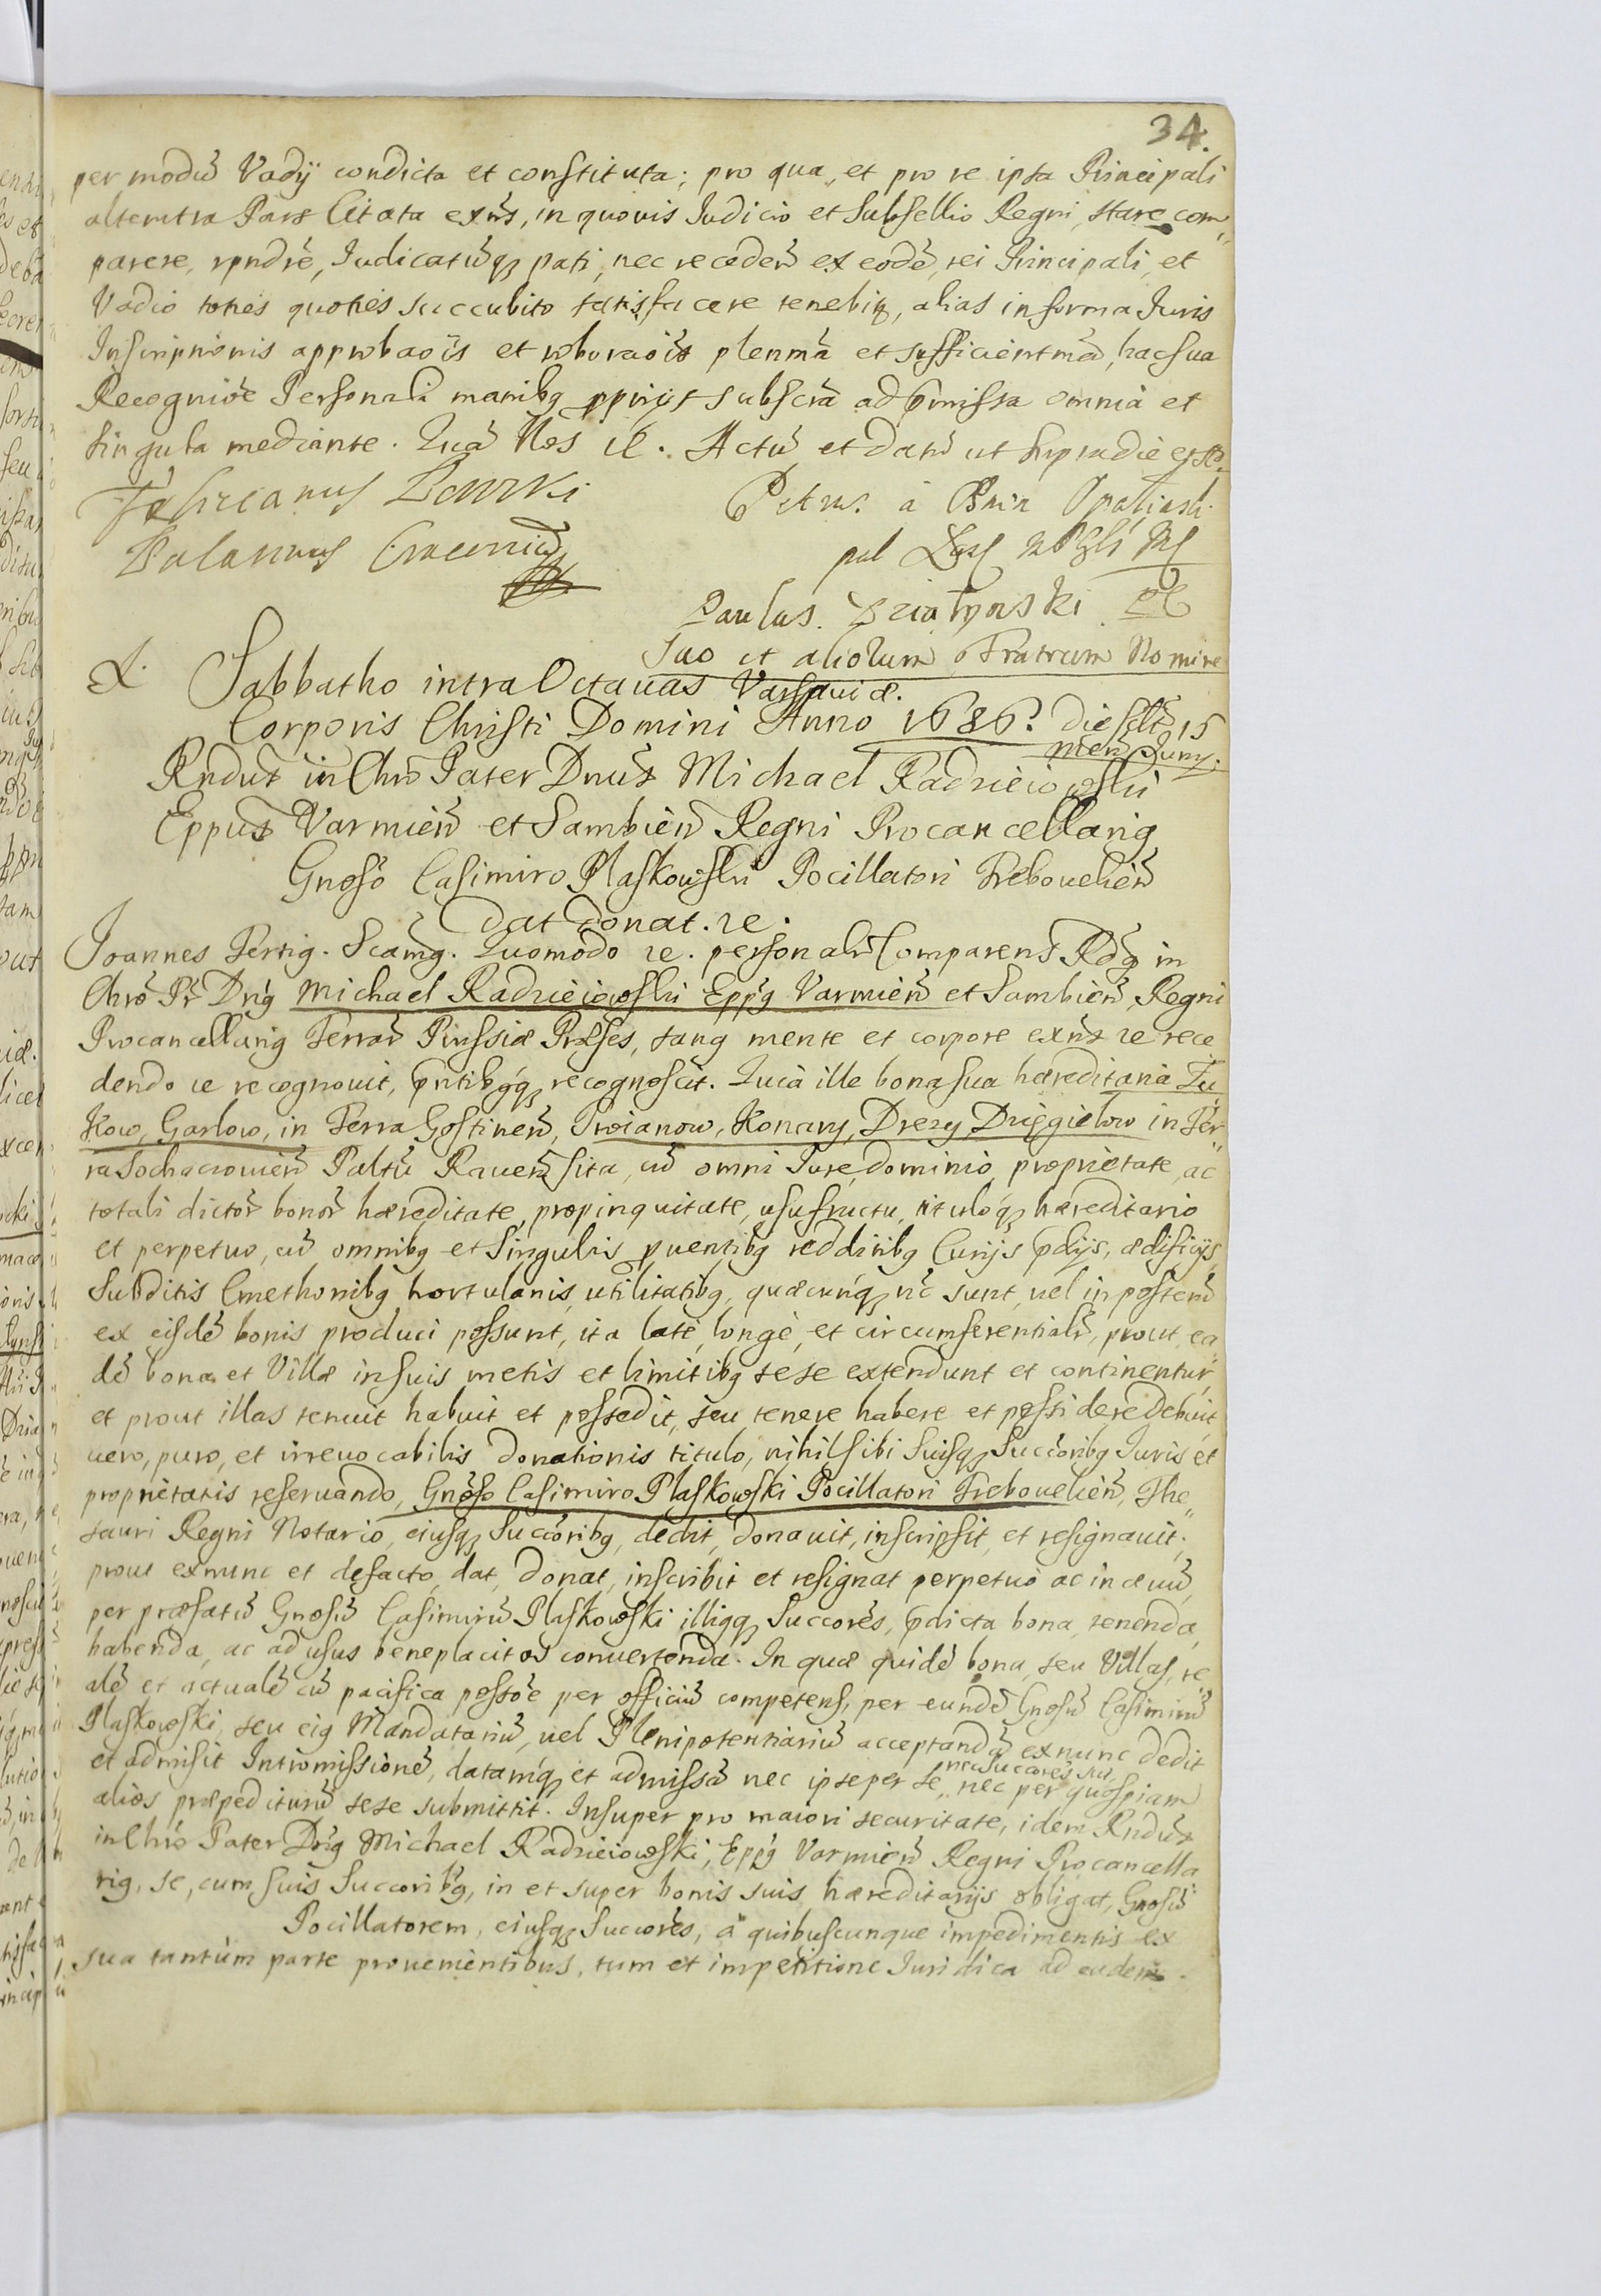 34.
per modũ Vadÿ condicta et constituta; pro qua, et pro re ipsa Principali
alterutra Pars Citata exñs, in quovis Judicio et Subsellio Regni, stare com„
parere, rpndrẽ, Judicatũq₃ pati, nec recedeñ ex eodẽ, rei Principali, et
Vadio toties quoties succubito satisfacere tenebiꝫ, alias in forma Juris
Inscriptionis approbaõis et roboraõis plenmã et sufficientmã, hac sua
Recogniõe Personali manibꝫ pprijs subscrã ad p̃missa omnia et
singula mediante. Quã Nos ꝛc. Actũ et datũ ut supra die et
Petrus à Bnin Opalinski
Paulus. Dzialynski
Suo et aliorum Fratrum Nomine
Sabbatho intra Octavas Varsaviæ.
Corporis Christi Domini Anno 1686? Die sclt 15
mens Juny.
Rndus in Chro Pater Dnus Michael Radzieiowski
Eppus Varmień et Sambień Regni Procancellariꝫ
Gnoso Casimiro Plaskowski Pocillatori Trebovelień
dat donat. ꝛc.
Joannes Tertiꝫ. Scamꝫ. Quomodo ꝛc. personalr Comparens Rdꝫ in
Chro Pr Dnꝫ Michael Radzieiowski Eppꝫ Varmień et Sambień, Regni
Procancellariꝫ Terrar Prussiæ Præses, sanꝫ mente et corpore exñs ꝛc rece
dendo ꝛc recognovit, p̃ntibꝫq₃ recognoscit. Quia ille bona sua hæreditaria Zu„
kow, Garlow, in Terra Gostineń, Troianow, Konary, Drezy, Dzięgielow in Ter„
ra Sochaczovień Paltũ Raveń sita, cũ omni Jure, dominio, proprietate, ac
totali dictor bonor hæreditate, propinquitate, usufructu, tituloq₃ hæreditario
et perpetuo, cũ omnibꝫ et singulis pventibꝫ redditibꝫ Curijs p̃dijs, ædificijs,
Subditis Cmethonibꝫ hortulanis, utilitatibꝫ, quæcunq₃ nc̃ sunt, vel in posterũ
ex eisdẽ bonis produci possunt, ita latè, longè, et circumferentialr, prout ea„
dẽ bona et Villæ in suis metis et limitibꝫ sese extendunt et continentur,
et prout illas tenuit habuit et possedit, seu tenere habere et possidere debuit
vero, puro, et irrevocabilis donationis titulo, nihil sibi Suisq₃ Succoribꝫ Juris et
proprietatis reservando, Gnoso Casimiro Plaskowski Pocillatori Trebovelień, The„
sauri Regni Notario, eiusq₃ Succoribꝫ, dedit, donavit, inscripsit, et resignavit;
prout exnunc et defacto, dat, donat, inscribit et resignat perpetuò ac in ævũ,
per præfatũ Gnosũ Casimirũ Plaskowski illiꝫq₃ Succores, p̃dicta bona, tenenda,
habenda, ac ad usus beneplacitos convertenda. In quæ quidẽ bona, seu Villas, re„
alẽ et actualẽ cũ pacifica possõe per officiũ competens, per eundẽ Gnosũ Casimirũ
Plaskowski, seu eiꝫ Mandatariũ, vel Plenipotentiariũ acceptandã exnunc dedit
et admisit Intromissionẽ, datamq₃ et admissã nec ipse per se, nec per quospiam
nec Succores suos
alios præpediturũ sese submittit. Insuper pro maiori securitate, idem Rndus
in Chro Pater Dnꝫ Michael Radzieiowski, Eppꝫ Varmień Regni Procancella
riꝫ, se, cum suis Succoribꝫ, in et super bonis suis hæreditarijs obligat, Gnosũ
Pocillatorem, eiusq₃ Succores, à quibuscunque impedimentis ex
sua tantùm parte provenientibus, tum et impetitione Juridica ad eadem